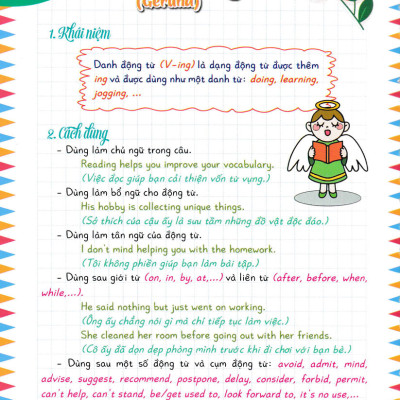 (Gerund)
1. Khái niệm
Danh động từ (V-ing) là dạng động từ được thêm
ing và được dùng như một danh từ: doing, learning,
jogging, ...
2. Cách dùng
- Dùng làm chủ ngữ trong câu.
Reading helps you improve your vocabulary.
(Việc đọc giúp bạn cải thiện vốn từ vựng.)
- Dùng làm bổ ngữ cho động từ.
His hobby is collecting unique things.
(Sở thích của cậu ấy là sưu tầm những đồ vật độc đáo.)
- Dùng làm tân ngữ của động từ.
I don't mind helping you with the homework.
(Tôi không phiền giúp bạn làm bài tập.)
- Dùng sau giới từ (on, in, by, at,...) và liên từ (after, before, when,
while,...).
He said nothing but just went on working.
(Ông ấy chẳng nói gì mà chỉ tiếp tục làm việc.)
She cleaned her room before going out with her friends.
(Cô ấy đã dọn dẹp phòng mình trước khi đi chơi với bạn bè.)
- Dùng sau một số động từ và cụm động từ: avoid, admit, mind,
advise, suggest, recommend, postpone, delay, consider, forbid, permit,
can't help, can't stand, be/get used to, look forward to, it's no use,...